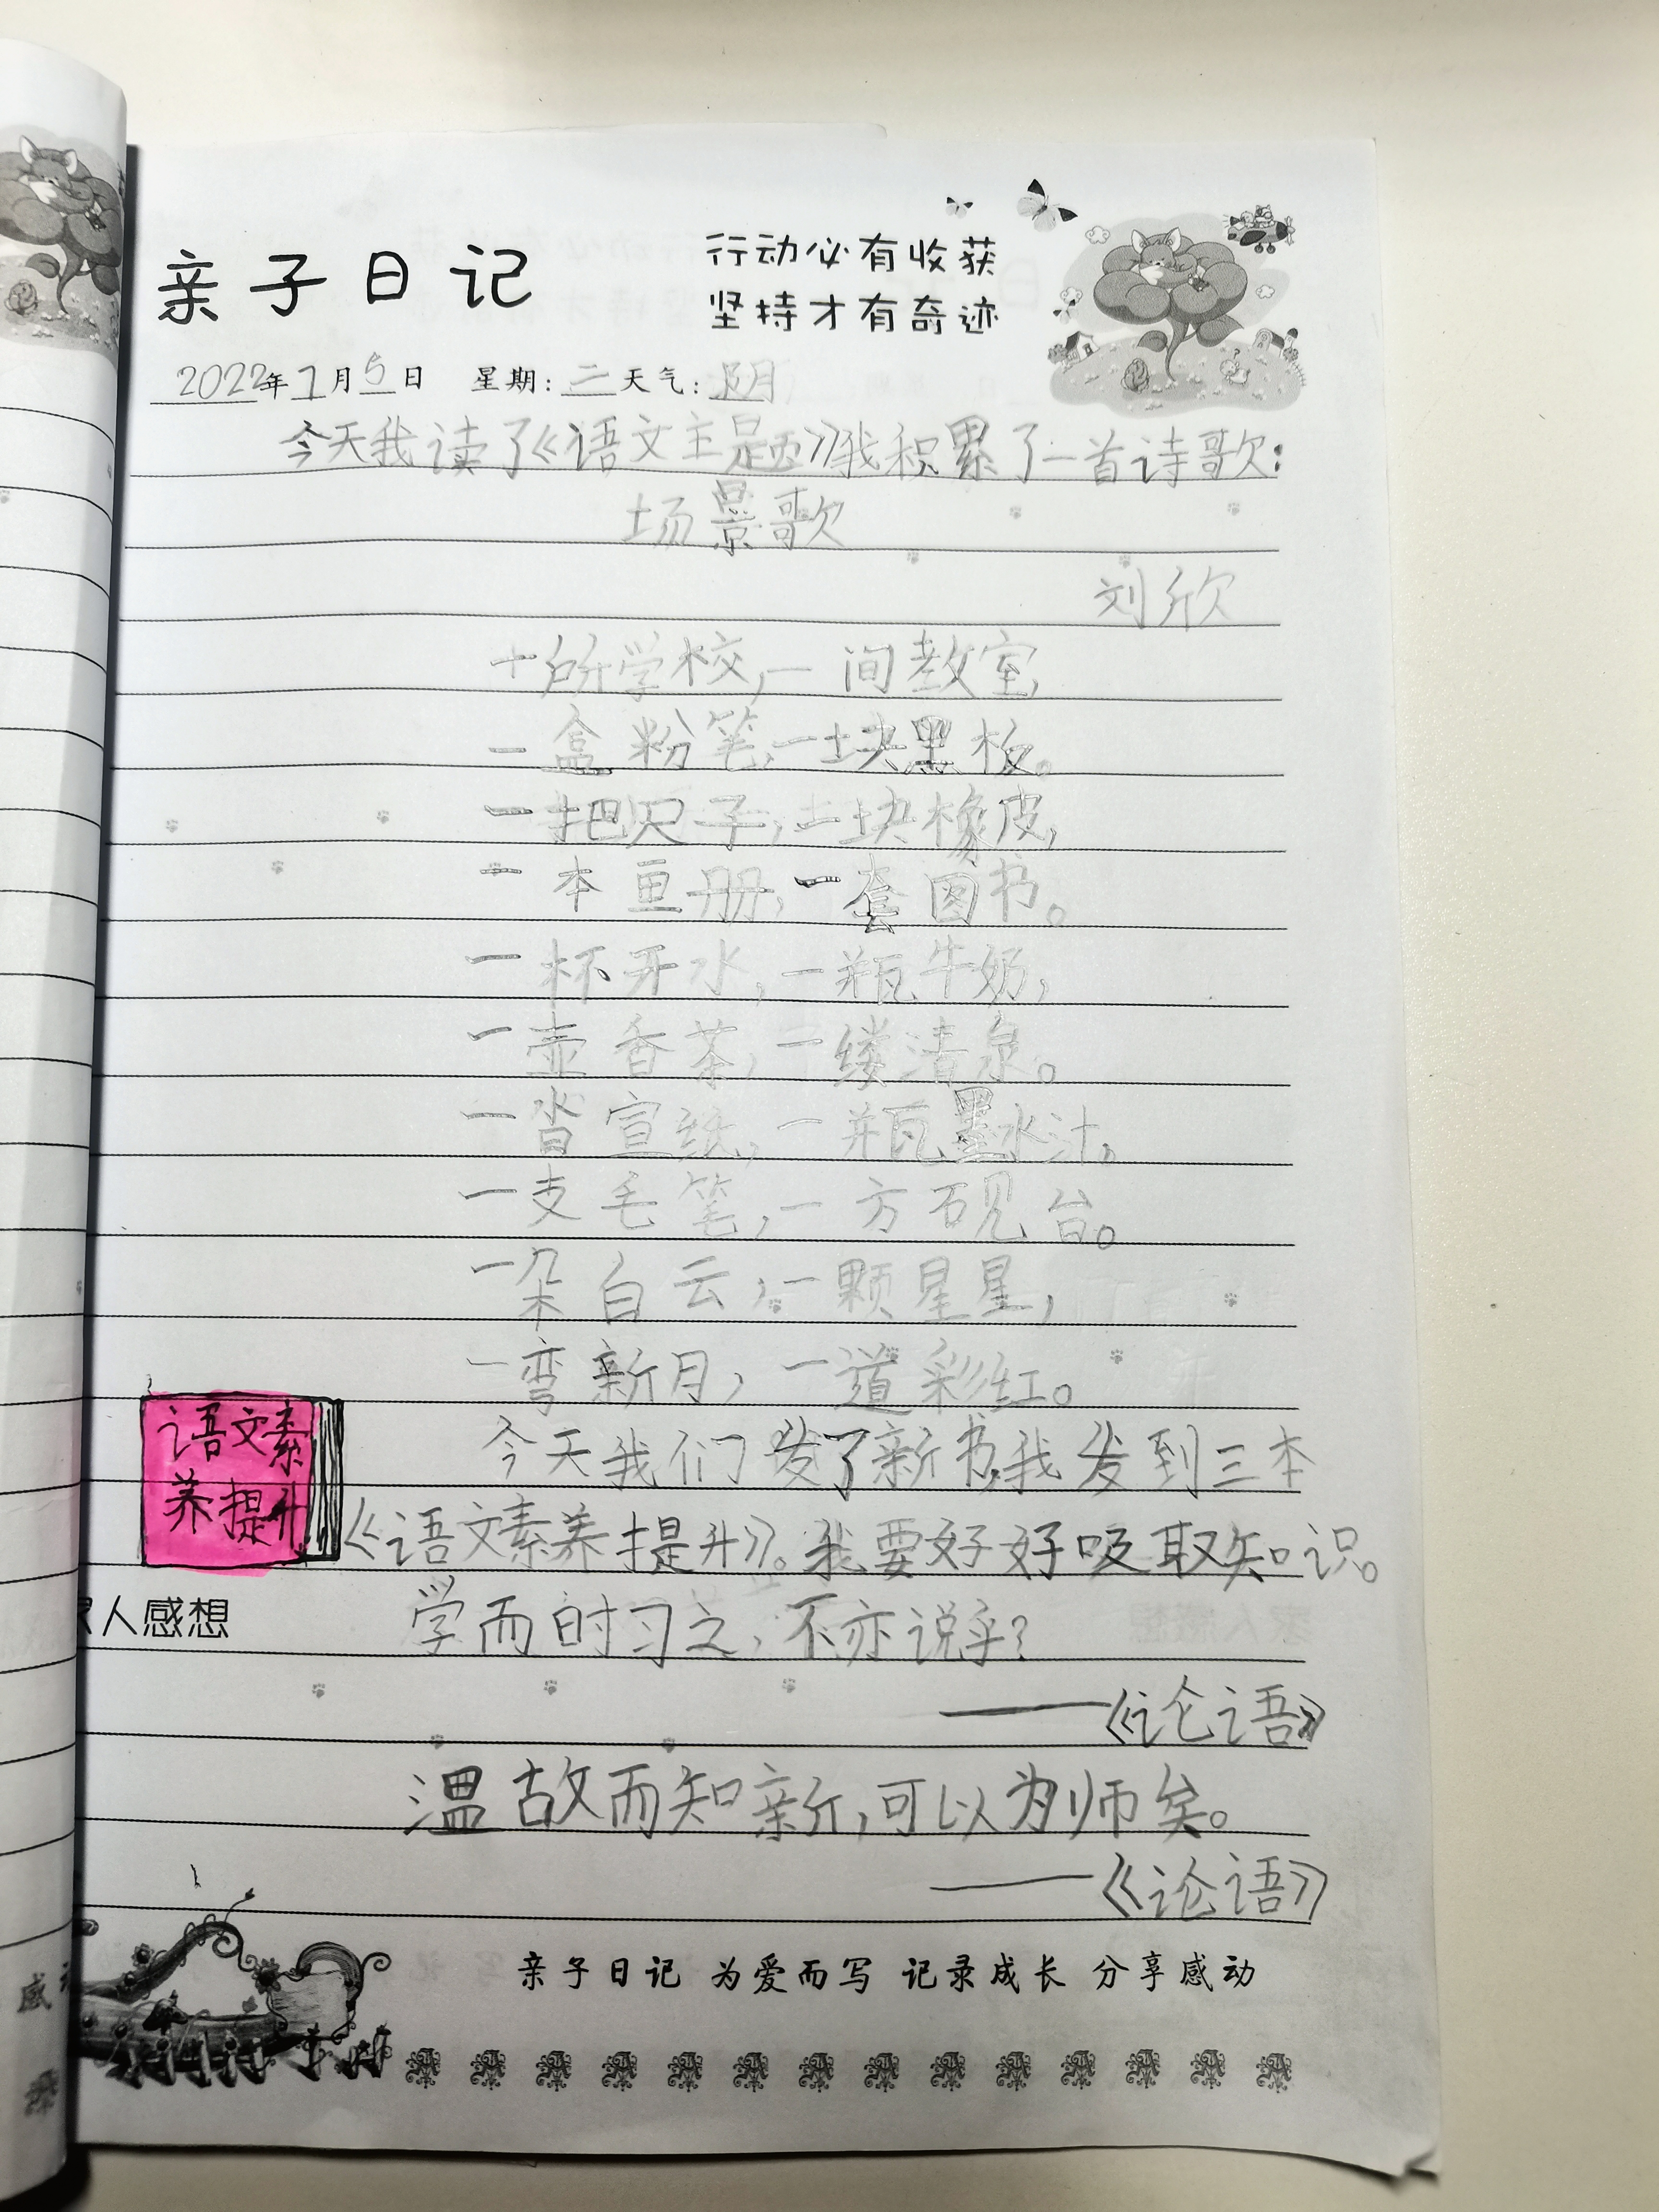 亲子日记
行动必有收获
坚持才有奇迹
2022年1月5日 星期:二天气:阴
今天我读了《语文主题》我积累了一首诗歌:
场景歌
刘欣
一所学校,一间教室,
一盒粉笔,一块黑板。
一把尺子,一块橡皮,
一本画册,一套图书。
一杯开水,一瓶牛奶,
一壶香茶,一缕清泉。
一沓宣纸,一瓶墨水汁。
一支毛笔,一方砚台。
一朵白云,一颗星星,
一弯新月,一道彩红。
今天我们发了新书,我发到三本
语文素
养提升
《语文素养提升》。我要好好吸取知识。
家人感想
学而时习之,不亦说乎?
——《论语》
温故而知新,可以为师矣。
——《论语》
亲子日记 为爱而写 记录成长 分享感动